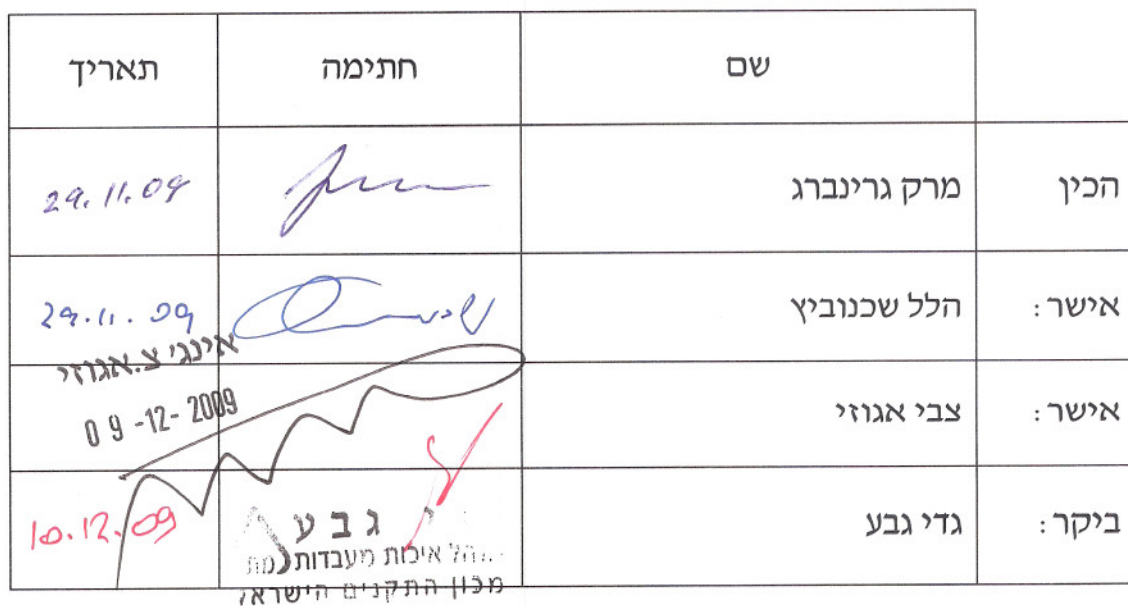 שם חתימה תאריך
הכין מרק גרינברג 29.11.09
אישר: הלל שכנוביץ 29.11.09
אישר: צבי אגוזי אינג' צ.אגוזי
09-12-2009
ביקר: גדי גבע 10.12.09
גבע
איכות מעבדות
מכון התקנים